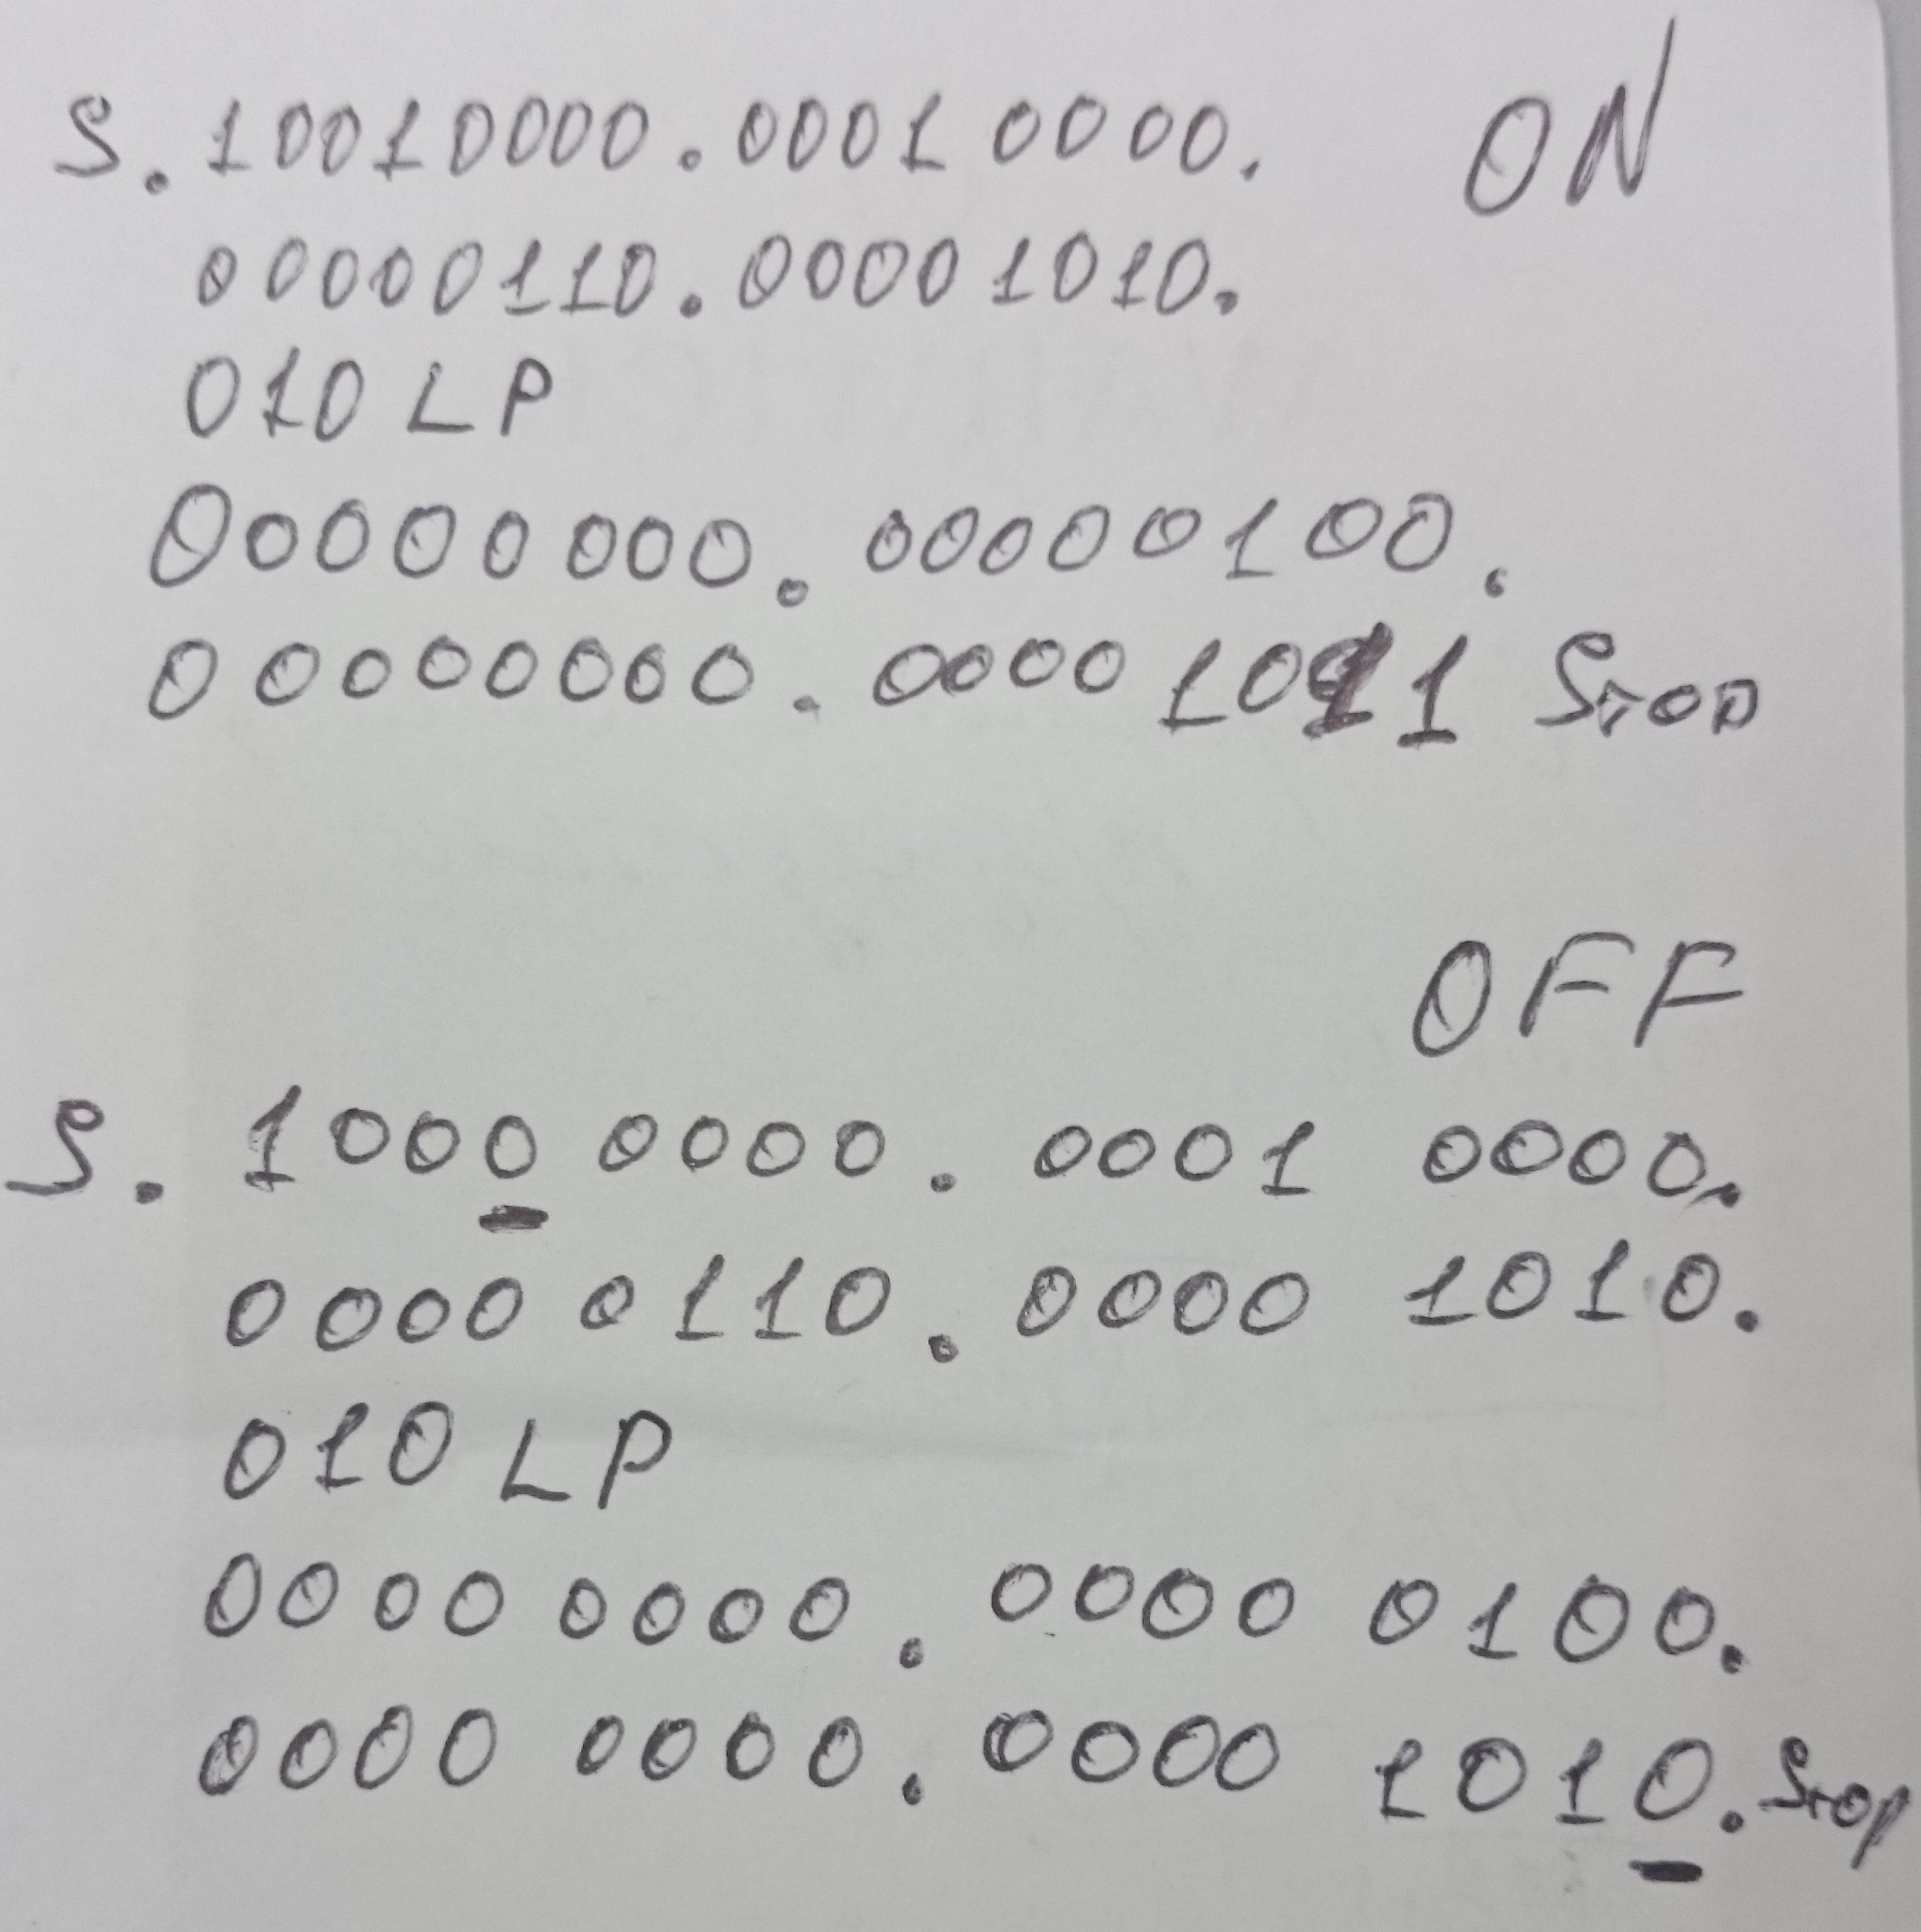 S. 10010000. 00010000. ON
00000110. 00001010.
010 LP
00000000. 00000100.
00000000. 00001011 STOP
OFF
S. 1000 0000. 0001 0000.
0000 0110. 0000 1010.
010 LP
0000 0000. 0000 0100.
0000 0000. 0000 1010. Stop